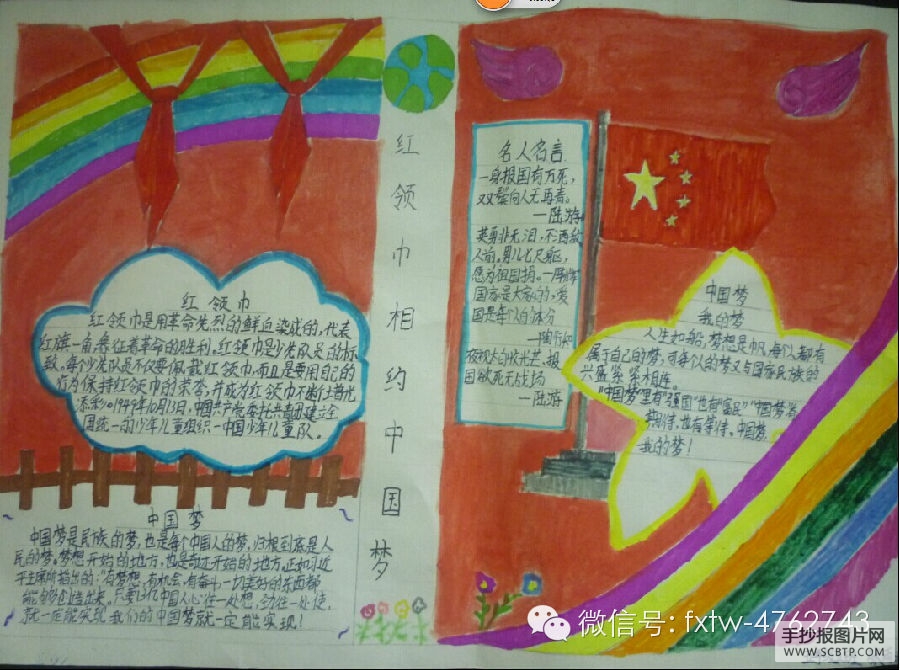 红领巾相约中国梦
红领巾
红领巾是用革命先烈的鲜血染成的,代表
红旗一角,象征着革命的胜利,红领巾是少先队员的标
致,每个少先队员不仅要佩戴红领巾,而且是要用自己的
行为保持红领巾的荣誉,并成为红领巾不断增上着光
添彩。1949年10月13日,中国共产党委托共青团建立全
国统一的少年儿童组织一中国少年儿童队。
中国梦
中国梦是民族的梦,也是每个中国人的梦,归根到底是人
民的梦。梦想开始的地方,也是奇迹开始的地方,正如习近
平主席所指出的:有梦想,有机会,有奋斗,一切美好的东西都
能够创造出来。只要13亿中国人心往一处想,劲往一处使,
就一定能实现,我们的中国梦就一定能实现!
名人名言
一身报国有万死,
双鬓向人无再春。
—陆游
英勇非无泪,不洒敌
人前。男儿七尺躯,
愿为祖国捐。—陈辉
国家是大家的,爱
国是每个人的本分
—陶行知
夜视太白收光芒,报
国欲死无战场
—陆游
中国梦
我的梦
人生如船,梦想是帆,每个人都有
属于自己的梦,可每个人的梦又与国家民族的
兴盛紧紧相连。
"中国梦"里有"强国"也有"富民""中国梦"有
期待,也有等待。中国梦
我的梦!
微信号: fxtw-4762743
手抄报图片网
WWW.SCBTP.COM